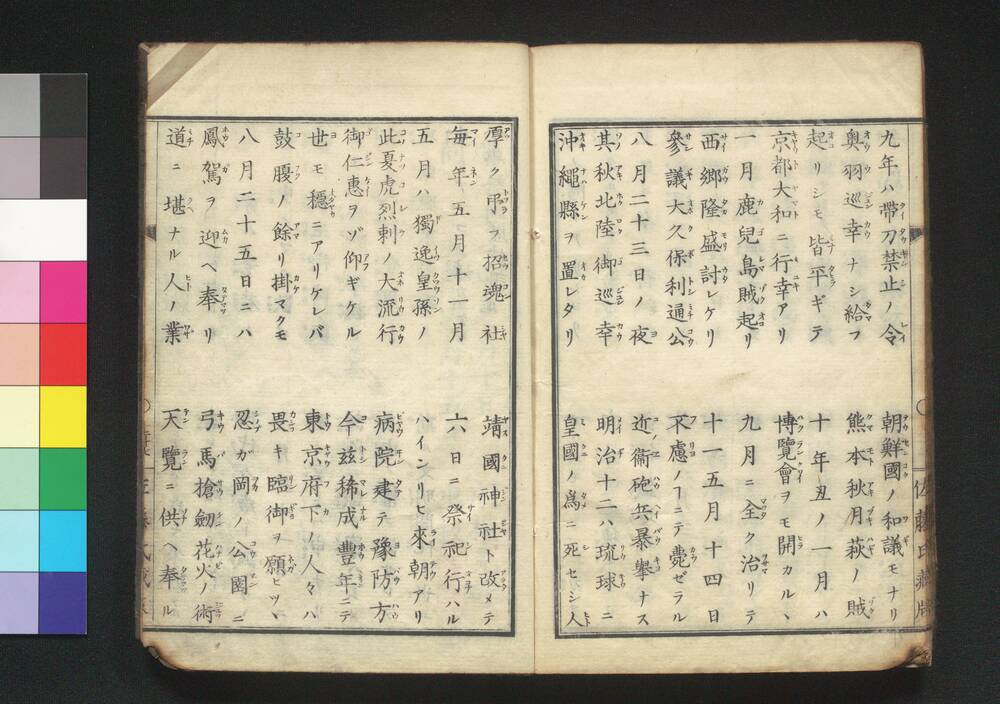 九年ハ帶刀禁止ノ令
朝鮮國ノ和議モナリ
奥羽巡幸ナシ給フ
熊本秋月萩ノ賊
起リシモ皆平ギテ
十年丑ノ一月ハ
京都大和ニ行幸アリ
博覽會ヲモ開カルヽ
一月鹿兒島賊起リ
九月ニ全ク治リテ
西郷隆盛討レケリ
十一五月十四日
參議大久保利通公
不慮ノヿニテ薨ゼラル
八月二十三日ノ夜
近衞砲兵暴擧ナス
其秋北陸御巡幸
明治十二ハ琉球ニ
沖繩縣ヲ置レタリ
皇國ノ爲ニ死セシ人
厚ク弔ヲ招魂社
靖國神社ト改メテ
毎年五月十一月
六日ニ祭祀行ハル
五月ハ獨逸皇孫ノ
ハインリヒ來朝アリ
此夏虎烈剌ノ大流行
病院建テ豫防方
御仁惠ヲゾ仰ギケル
今玆稀成豐年ニテ
世モ穩ニアリケレバ
東京府下ノ人々ハ
鼓腹ノ餘リ掛マクモ
畏キ臨御ヲ願ヒツヽ
八月二十五日ニハ
忍ガ岡ノ公園ニ
鳳駕ヲ迎ヘ奉リ
弓馬搶劒花火ノ術
道ニ堪ナル人ノ業
天覽ニ供ヘ奉ル